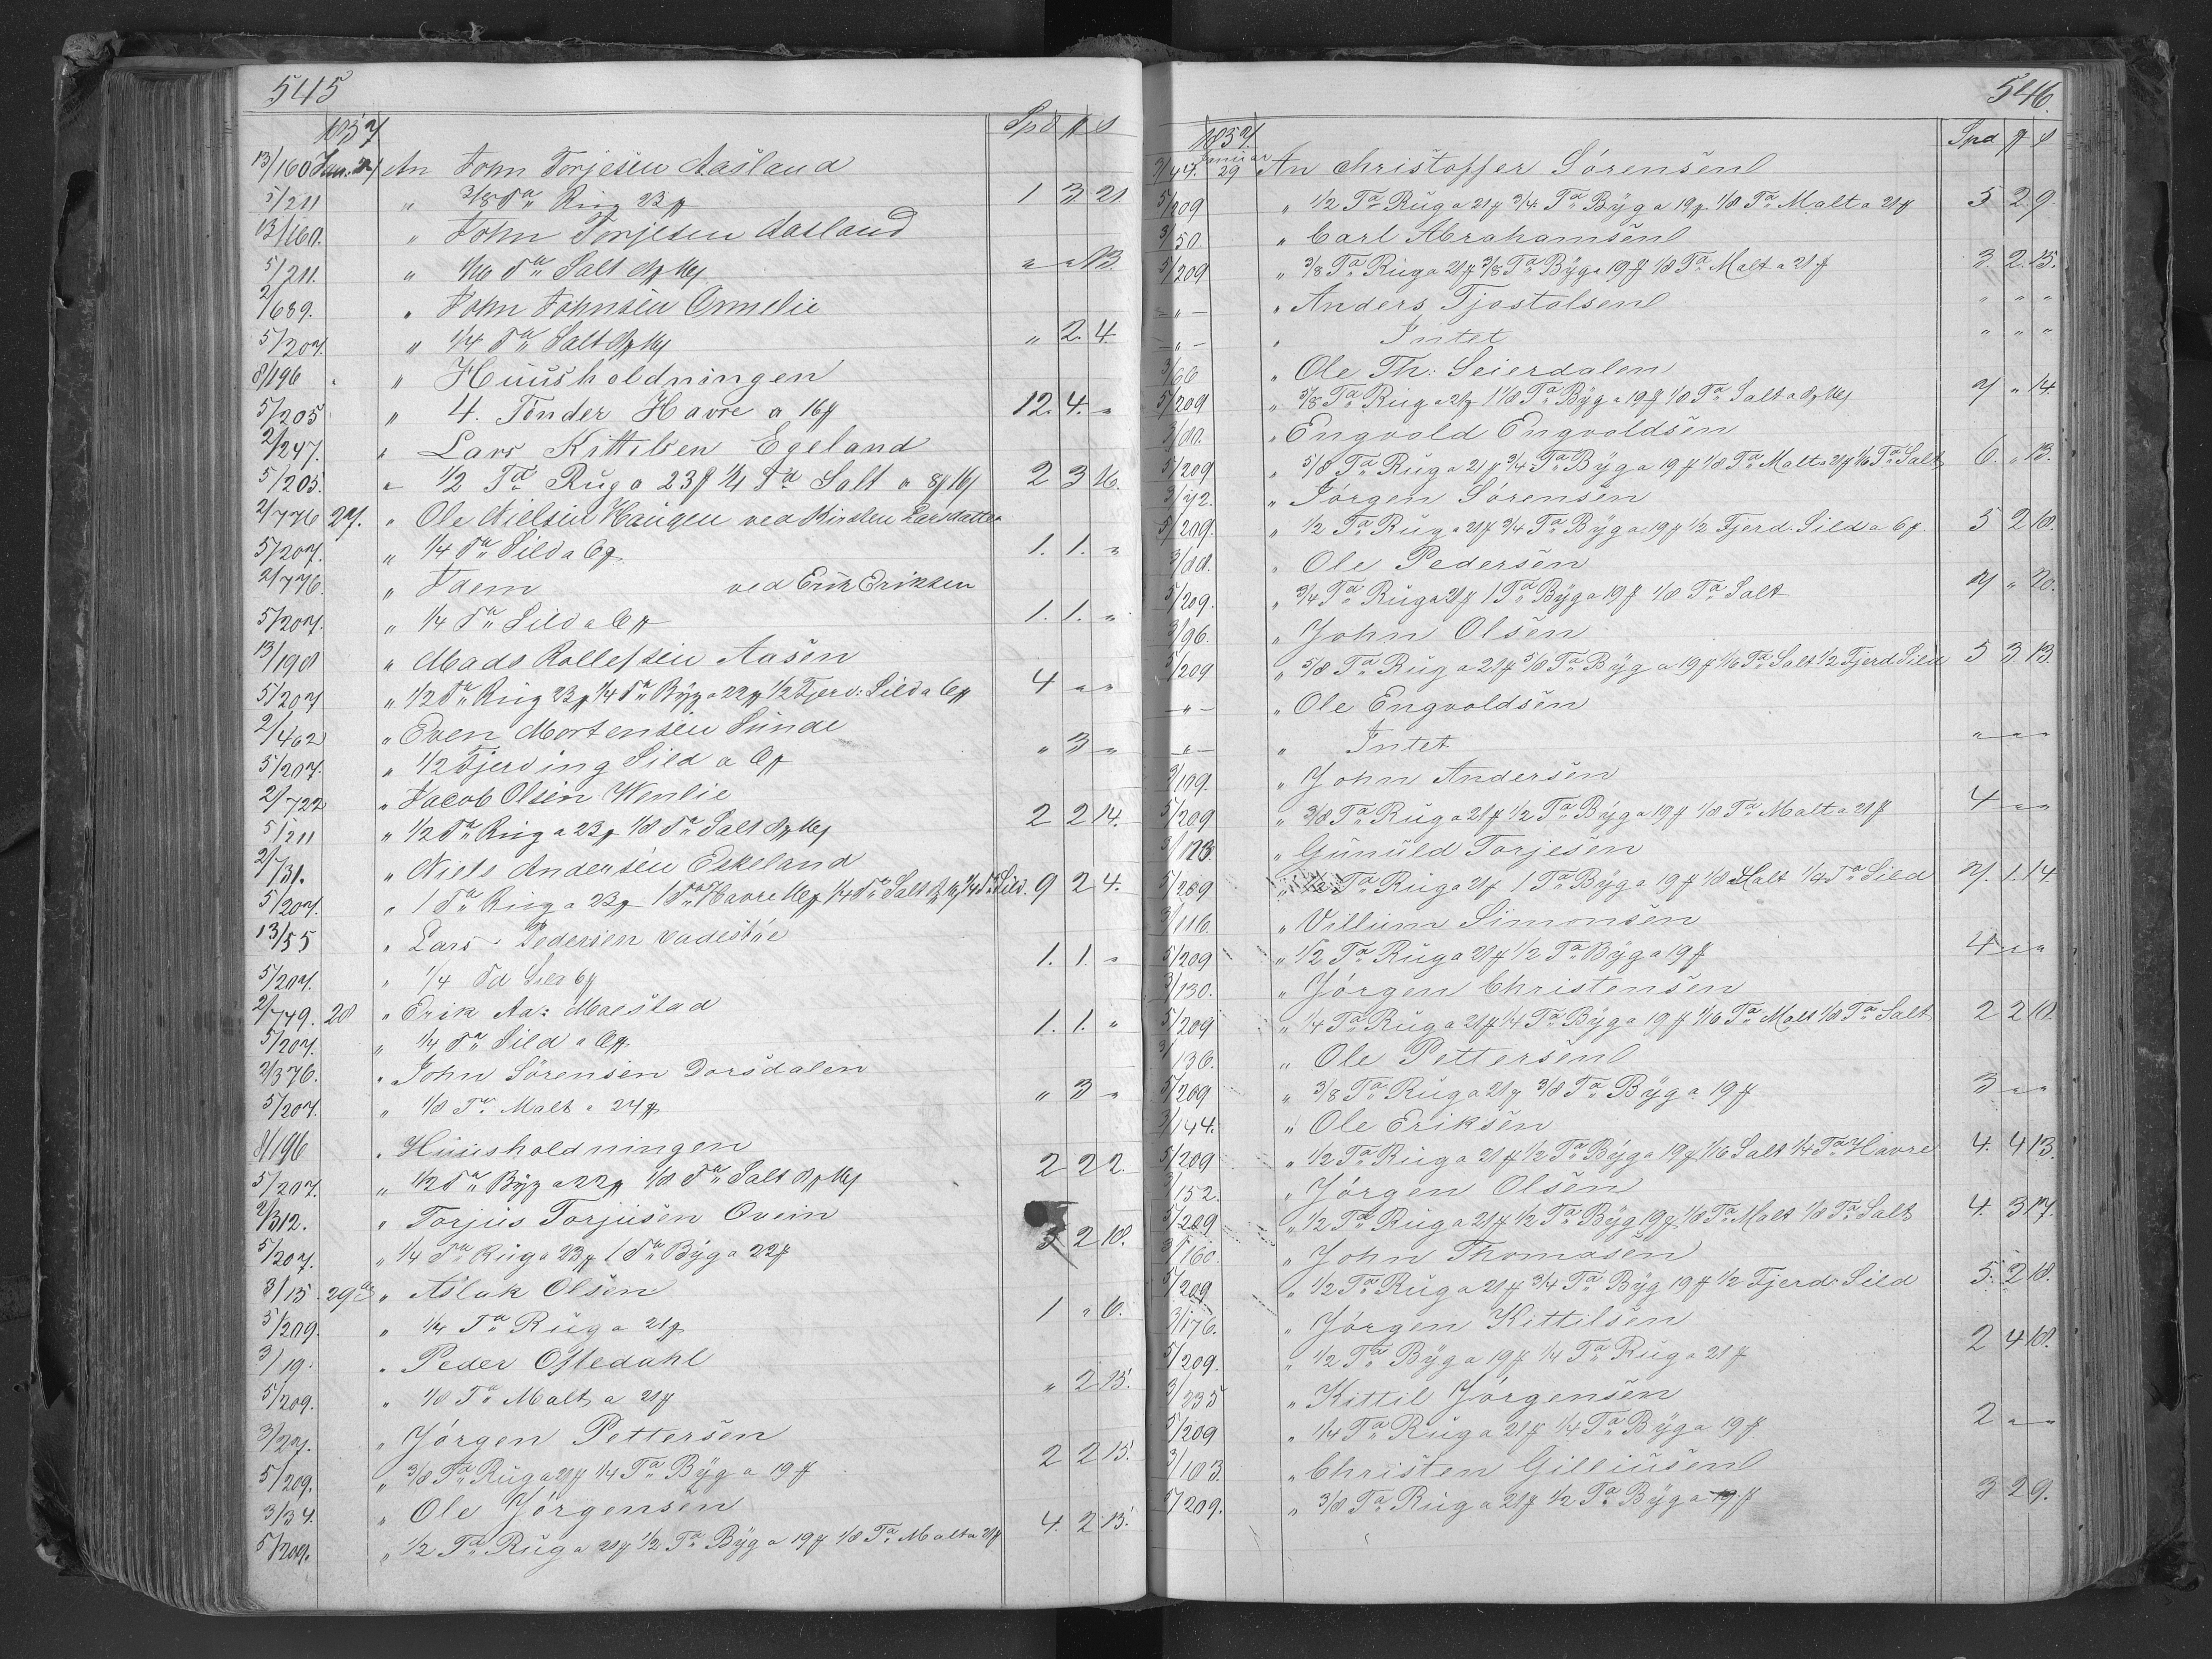 545
1857 Spd # s
13/160 Jan. 24 An John Torjesen Aasland
5/211 " 3/8 Ta Rug 23 # 1 3 21
13/160. " John Torjesen Aasland
5/211. " 1/16 Ta Salt 8 # 16 s " " 13.
2/689. " John Johnsen Omelie
5/207. " 1/4 Ta Salt 8 # 16 s " 2 4
8/196 " Huusholdningen
5/205 " 4. Tönder Havre a 16 # 12. 4. "
2/247. " Lars Kittilsen Egeland
5/205. " 1/2 Ta Rug a 23 # 1/4 Ta Salt a 8 # 16 s 2 3 16.
2/776 27. " Ole Nielsen Haugen ved Kirsten Larsdatter
5/207. " 1/4 Ta Sild a 6 # 1. 1. "
2/776. " Idem ved Erik Eriksen
5/207. " 1/4 Ta Sild a 6 # 1. 1. "
13/198 " Mads Rollefsen Aasen
5/207 " 1/2 Ta Rug 23 # 1/4 Ta Byg a 22 # 1/2 Fjerd: Sild a 6 # 4 " "
2/462 " Even Mortensen Sunde
5/207. " 1/2 Fjerding Sild a 6 # " 3 "
2/722 " Jacob Olsen Wenlie
5/211 " 1/2 Ta Rug a 23 # 1/8 Ta Salt 8 # 16 s 2 2 14.
2/731. " Niels Andersen Eskeland
5/207. " 1 Ta Rug a 23 # 1 Ta Havre 16 # 1/4 Ta Salt 8 # 16 s 1/4 Ta Sild. 9 2 4.
13/55 " Lars Pedersen
5/207. " 1/4 Ta Sild 6 # 1. 1. "
2/749. 28 " Erik Aa: Moestad
5/207. " 1/4 Ta Sild a 6 # 1. 1. "
2/376. " John Sörensen Dorsdalen
5/207. " 1/8 Ta Malt a 24 # " 3 "
8/196 " Huusholdningen
5/207. " 1/2 Ta Byg a 22 # 1/8 Ta Salt 8 # 16 s 2 2 2.
2/312. " Torjus Torjusen Ovein
5/207. " 1/4 Ta Rug a 23 # 1 Ta Byg a 22 # 3 2 18.
3/15. 29 " Aslak Olsen
5/209. " 1/4 Ta Rug a 21 # 1 " 6.
3/19. " Peder Oftedahl
5/209. " 1/8 Ta Malt a 21 # " 2 15.
3/27. " Jörgen Pettersen
5/209. " 3/8 Ta Rug a 21 # 1/4 Ta Byg a 19 # 2 2 15.
3/34. " Ole Jörgensen
5/209. " 1/2 Ta Rug a 21 # 1/2 Ta Byg a 19 # 1/8 Ta Malt a 21 # 4. 2 15.
546.
1857. Spd # s
3/44. Januar 29 An Christoffer Sörensen
5/209 " 1/2 Ta Rug a 21 # 3/4 Ta Byg a 19 # 1/8 Ta Malt a 21 # 5 2 9.
3/50. " Carl Abrahamsen
5/209 " 3/8 Ta Rug a 21 # 3/8 Ta Byg a 19 # 1/8 Ta Malt a 21 # 3. 2. 15.
— " — " Anders Tjostolsen " " "
— " — " Intet " " "
3/66 " Ole Th: Seierdalen
5/209 " 5/8 Ta Rug a 21 # 1 1/8 Ta Byg a 19 # 1/8 Ta Salt a 8 # 16 s 7 " 14.
3/80. " Engvold Engvoldsen
5/209 " 5/8 Ta Rug a 21 # 3/4 Ta Byg a 19 # 1/8 Ta Malt a 21 # 1/16 Ta Salt 6. " 13.
3/72. " Jörgen Sörensen
5/209. " 1/2 Ta Rug a 21 # 3/4 Ta Byg a 19 # 1/2 Fjerd. Sild a 6 # 5 2 18.
3/88. " Ole Pedersen
5/209. " 3/4 Ta Rug a 21 # 1 Ta Byg a 19 # 1/8 Ta Salt 7 " 20.
3/96. " John Olsen
5/209 " 5/8 Ta Rug a 21 # 5/8 Ta Byg a 19 # 1/16 Ta Salt 1/2 Fjerd Sild 5 3 13.
— " — " Ole Engvoldsen
— " — " Intet " " "
3/109. " John Andersen
5/209 " 3/8 Ta Rug a 21 # 1/2 Ta Byg a 19 # 1/8 Ta Malt a 21 # 4 " "
3/123. " Gunuld Torjesen
5/209 " 1/2 Ta Rug a 21 # 1 Ta Byg a 19 # 1/8 Malt 1/4 Ta Sild 7. 1. 14.
3/116. " Villium Simonsen
5/209 " 1/2 Ta Rug a 21 # 1/2 Ta Byg a 19 # 4 " "
3/130. " Jörgen Christensen
5/209 " 1/4 Ta Rug a 21 # 1/4 Ta Byg a 19 # 1/16 Ta Malt 1/8 Ta Salt 2 2 18.
3/136. " Ole Pettersen
5/209 " 3/8 Ta Rug a 21 # 3/8 Ta Byg a 19 # 3 " "
3/144. " Ole Eriksen
5/209 " 1/2 Ta Rug a 21 # 1/2 Ta Byg a 19 # 1/16 Salt 1/4 Ta Havre 4. 4 13.
3/152. " Jörgen Olsen
5/209. " 1/2 Ta Rug a 21 # 1/2 Ta Byg 19 # 1/8 Ta Malt 1/8 Ta Salt 4. 3 17.
3/160. " John Thomasen
5/209 " 1/2 Ta Rug a 21 # 3/4 Ta Byg 19 # 1/2 Fjerd: Sild 5. 2 18.
3/176. " Jörgen Kittilsen
5/209. " 1/2 Ta Byg a 19 # 1/4 Ta Rug a 21 # 2 4 18.
3/235 " Kittil Jörgensen
5/209 " 1/4 Ta Rug a 21 # 1/4 Ta Byg a 19 # 2 " "
3/103. " Christen Gilliusen
5/209. " 3/8 Ta Rug a 21 # 1/2 Ta Byg a 19 # 3 2 9.